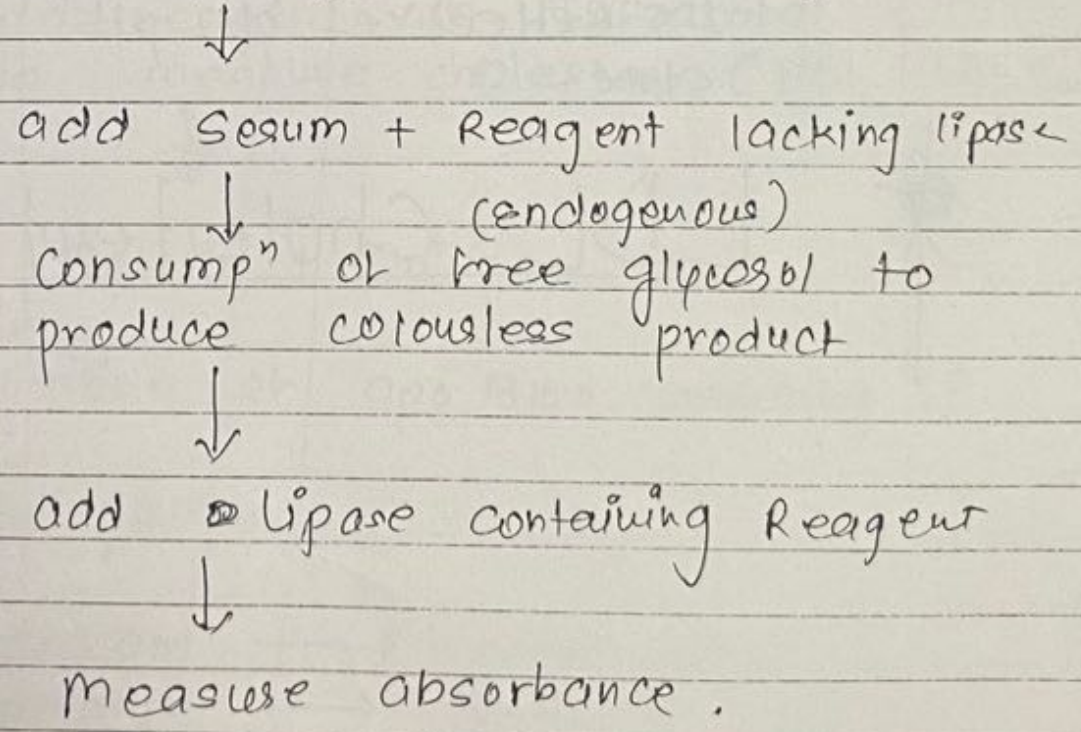 ↓
add Serum + Reagent lacking lipase
↓ (endogenous)
Consumpⁿ of free glycerol to
produce colourless product
↓
add lipase containing Reagent
↓
Measure absorbance.